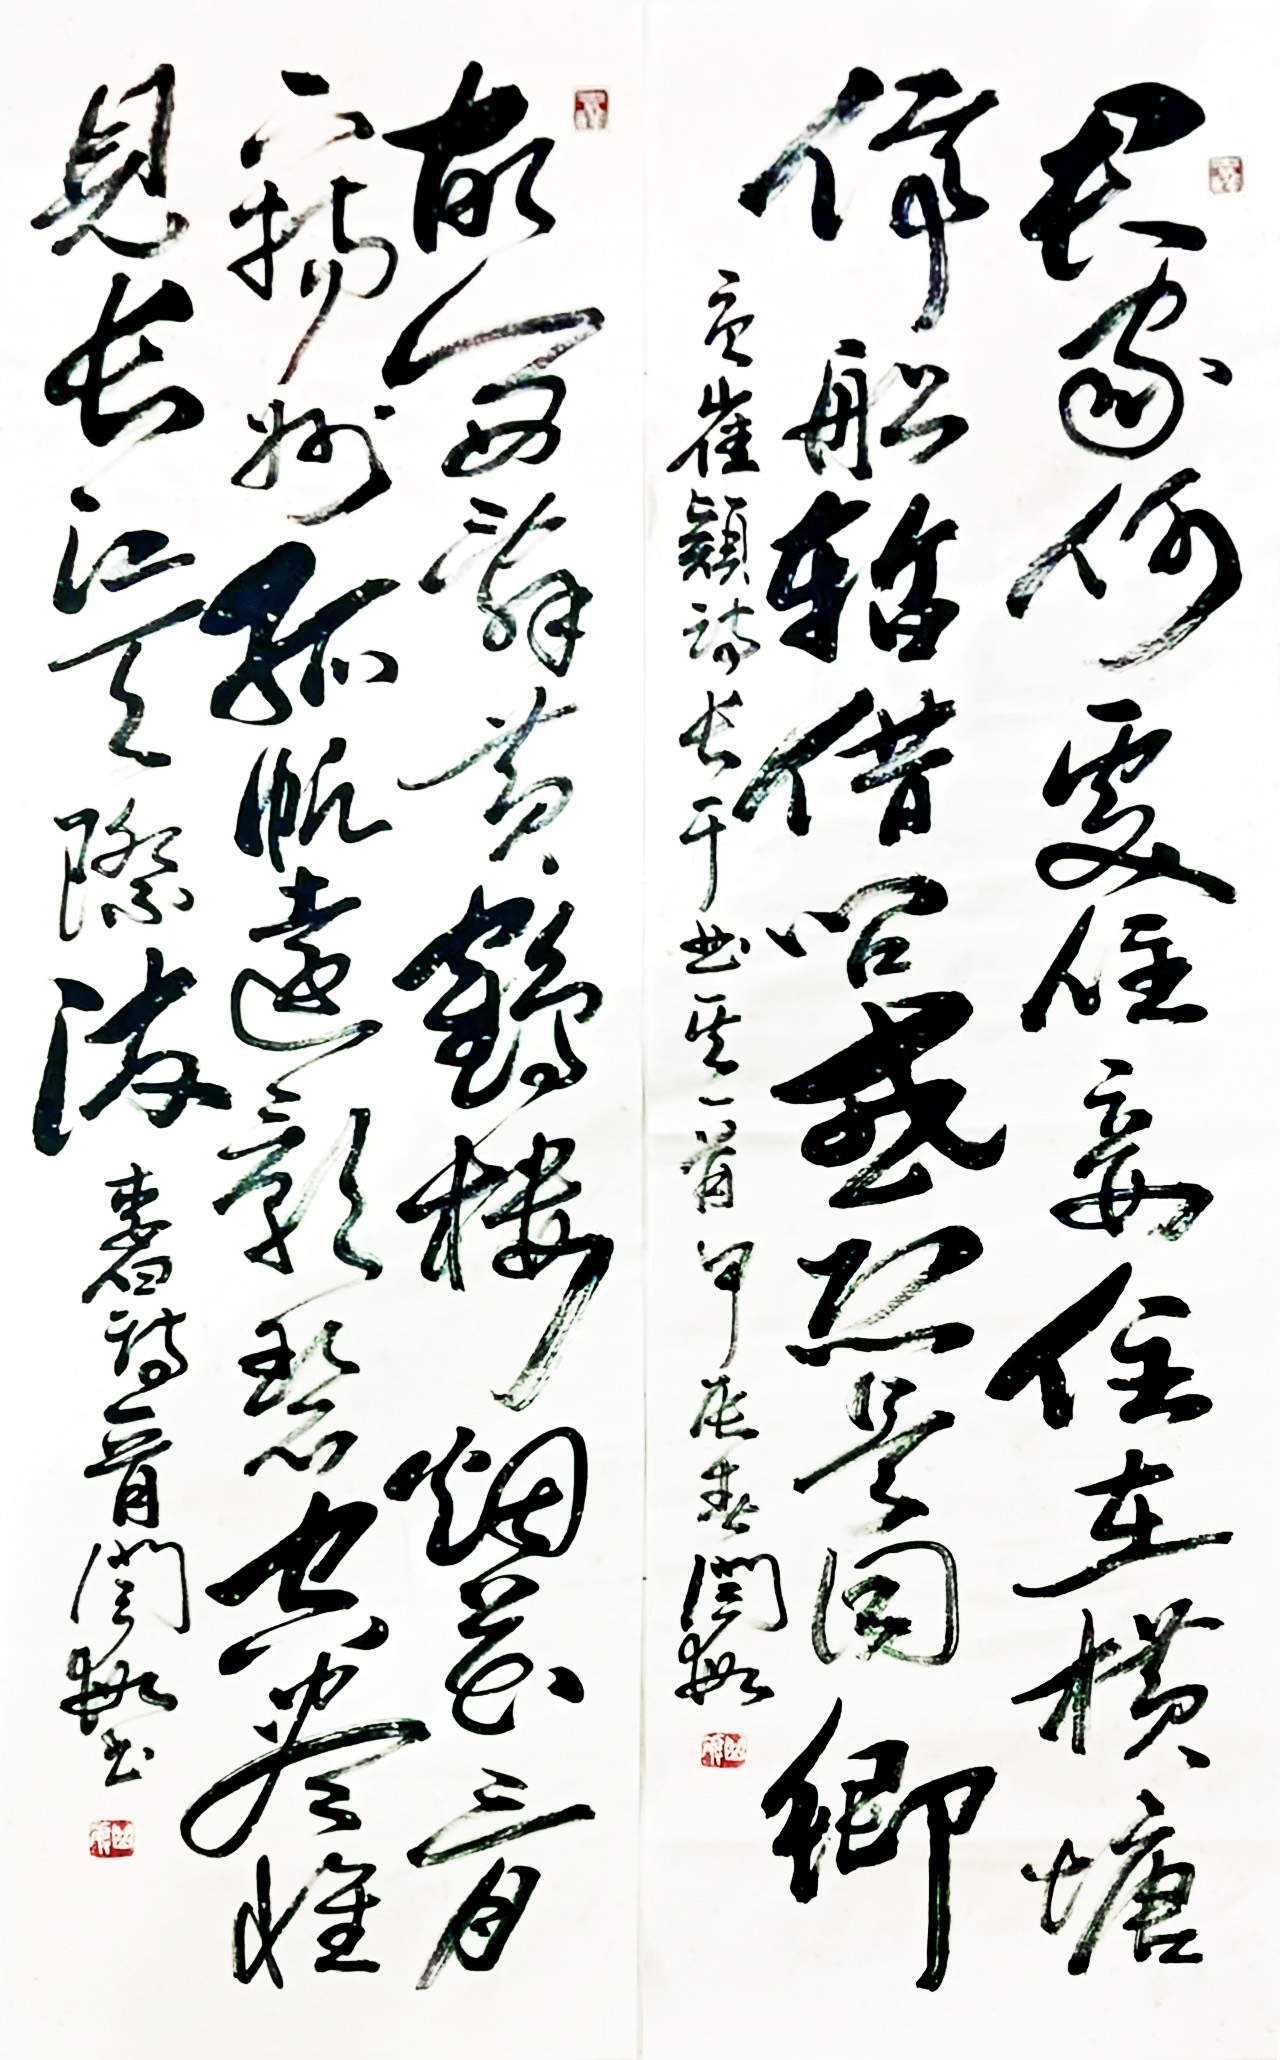 君家何處住妾住在橫塘
停船暫借問或恐是同鄉
崔顥詩長干曲其一首甲辰春閏
故人西辭黃鶴樓烟花三月
下揚州孤帆遠影碧空盡惟
見長江天際流
李白詩一首閏書